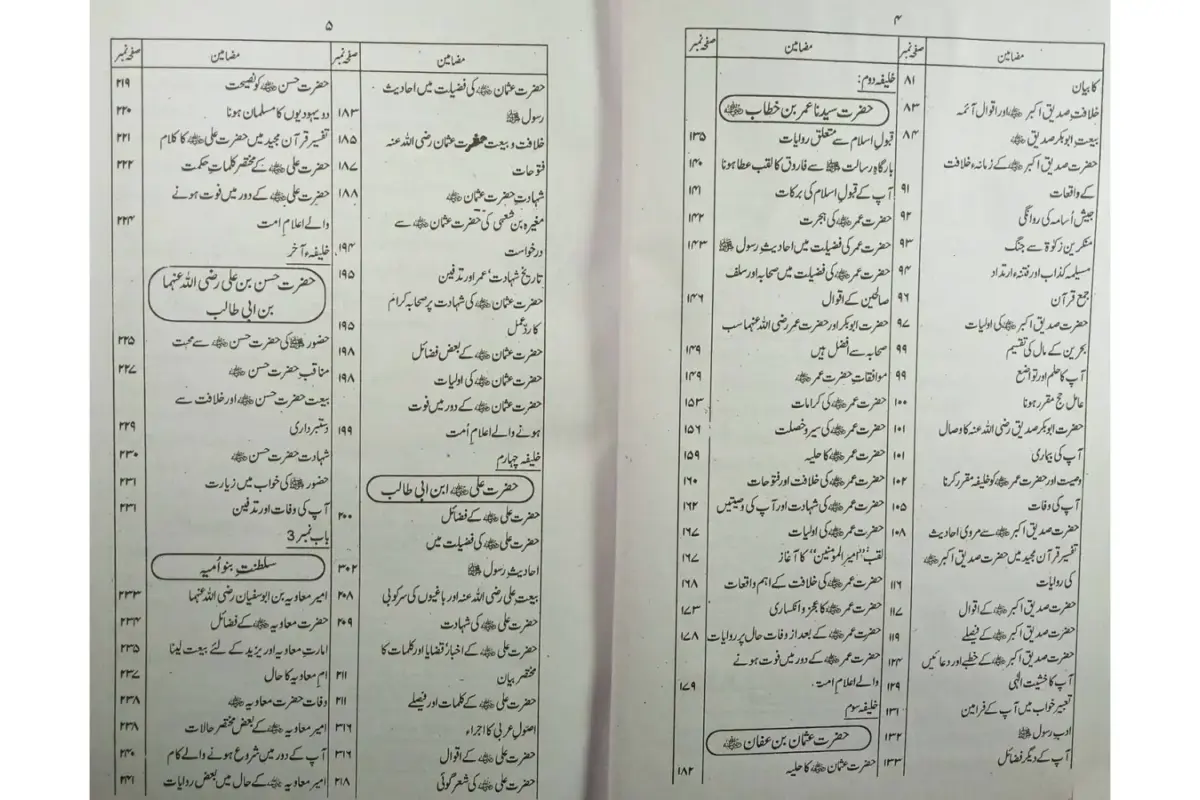 ۴
مضامین صفحہ نمبر
کا بیان ۸۱
خلافت صدیق اکبر ﷛ اور اقوال آئمہ ۸۳
بیعت ابوبکر صدیق ﷛ ۸۴
حضرت صدیق اکبر ﷛ کے زمانہء خلافت
کے واقعات ۹۱
جیش اُسامہ کی روانگی ۹۲
منکرین زکوٰة سے جنگ ۹۳
مسیلمہ کذاب اور فتنہء ارتداد ۹۴
جمع قرآن ۹۶
حضرت صدیق اکبر ﷛ کی اولیات ۹۷
بحرین کے مال کی تقسیم ۹۹
آپ کا حلم اور تواضع ۹۹
عامل حج مقرر ہونا ۱۰۰
حضرت ابوبکر صدیق رضی اللہ عنہ کا وصال ۱۰۱
آپ کی بیماری ۱۰۱
وصیت اور حضرت عمر ﷛ کو خلیفہ مقرر کرنا ۱۰۲
آپ کی وفات ۱۰۵
حضرت صدیق اکبر ﷛ سے مروی احادیث ۱۰۸
تفسیر قرآن مجید میں حضرت صدیق اکبر ﷛
کی روایات ۱۱۶
حضرت صدیق اکبر ﷛ کے اقوال ۱۱۷
حضرت صدیق اکبر ﷛ کے فیصلے ۱۱۹
حضرت صدیق اکبر ﷛ کے خطبے اور دعائیں ۱۲۴
آپ کا خشیت الٰہی ۱۲۹
تعبیر خواب میں آپ کے فرامین ۱۳۱
ادب رسول ﷺ ۱۳۲
آپ کے دیگر فضائل ۱۳۳
مضامین صفحہ نمبر
خلیفہ دوم:
حضرت سیدنا عمر بن خطاب ﷛
قبول اسلام سے متعلق روایات ۱۳۵
بارگاہِ رسالت ﷺ سے فاروق کا لقب عطا ہونا ۱۴۰
آپ کے قبول اسلام کی برکات ۱۴۱
حضرت عمر ﷛ کی ہجرت ۱۴۲
حضرت عمر کی فضیلت میں احادیثِ رسول ﷺ ۱۴۳
حضرت عمر ﷛ کی فضیلت میں صحابہ اور سلف
صالحین کے اقوال ۱۴۶
حضرت ابوبکر اور حضرت عمر رضی اللہ عنہما سب
صحابہ سے افضل ہیں ۱۴۹
موافقاتِ حضرت عمر ﷛ ۱۴۹
حضرت عمر ﷛ کی کرامات ۱۵۳
حضرت عمر ﷛ کی سیر و خصلت ۱۵۶
حضرت عمر ﷛ کا حلیہ ۱۵۹
حضرت عمر ﷛ کی خلافت اور فتوحات ۱۶۰
حضرت عمر ﷛ کی شہادت اور آپ کی وصیتیں ۱۶۲
حضرت عمر ﷛ کی اولیات ۱۶۷
لقب "امیر المومنین" کا آغاز ۱۶۷
حضرت عمر ﷛ کی خلافت کے اہم واقعات ۱۶۸
حضرت عمر ﷛ کا عجز و انکساری ۱۷۳
حضرت عمر ﷛ کے بعد از وفات حال پر روایات ۱۷۸
حضرت عمر ﷛ کے دور میں فوت ہونے
والے اعلام امت ۱۷۹
خلیفہ سوم
حضرت عثمان بن عفان ﷛
حضرت عثمان ﷛ کا حلیہ ۱۸۲
۵
مضامین صفحہ نمبر
حضرت عثمان ﷛ کی فضیلت میں احادیث
رسول ﷺ ۱۸۳
خلافت و بیعت حضرت عثمان رضی اللہ عنہ ۱۸۵
فتوحات ۱۸۷
شہادتِ حضرت عثمان ﷛ ۱۸۸
مغیرہ بن شعبی کی حضرت عثمان ﷛ سے
درخواست ۱۹۴
تاریخ شہادت عمر اور تدفین ۱۹۵
حضرت عثمان ﷛ کی شہادت پر صحابہ کرام
کا ردِ عمل ۱۹۵
حضرت عثمان ﷛ کے بعض فضائل ۱۹۸
حضرت عثمان ﷛ کی اولیات ۱۹۸
حضرت عثمان ﷛ کے دور میں فوت
ہونے والے اعلام اُمت ۱۹۹
خلیفہ چہارم
حضرت علی ﷛ ابن ابی طالب
حضرت علی ﷛ کے فضائل ۲۰۰
حضرت علی ﷛ کی فضیلت میں
احادیثِ رسول ﷺ ۳۰۲
بیعتِ علی رضی اللہ عنہ اور باغیوں کی سرکوبی ۲۰۸
حضرت علی ﷛ کی شہادت ۲۰۹
حضرت علی ﷛ کے اخبار، قضایا اور کلمات کا
مختصر بیان ۲۱۱
حضرت علی ﷛ کے کلمات اور فیصلے ۲۱۱
اصول عربی کا اجراء ۳۱۶
حضرت علی ﷛ کے اقوال ۳۱۶
حضرت علی ﷛ کی شعر گوئی ۲۱۸
مضامین صفحہ نمبر
حضرت حسن ﷛ کو نصیحت ۲۱۹
دو یہودیوں کا مسلمان ہونا ۲۲۰
تفسیر قرآن مجید میں حضرت علی ﷛ کا کلام ۲۲۱
حضرت علی ﷛ کے مختصر کلماتِ حکمت ۲۲۲
حضرت علی ﷛ کے دور میں فوت ہونے
والے اعلام امت ۲۲۴
خلیفہء آخر
حضرت حسن بن علی رضی اللہ عنہما
بن ابی طالب
حضور ﷺ کی حضرت حسن ﷛ سے محبت ۲۲۵
مناقب حضرت حسن ﷛ ۲۲۷
بیعت حضرت حسن ﷛ اور خلافت سے
دستبرداری ۲۲۹
شہادت حضرت حسن ﷛ ۲۳۰
حضور ﷺ کی خواب میں زیارت ۲۳۱
آپ کی وفات اور تدفین ۲۳۱
باب نمبر 3
سلطنتِ بنو اُمیہ
امیر معاویہ بن ابوسفیان رضی اللہ عنہما ۲۳۳
حضرت معاویہ ﷛ کے فضائل ۲۳۴
امارتِ معاویہ اور یزید کے لئے بیعت لینا ۲۳۵
امِ معاویہ کا حال ۲۳۷
وفات حضرت معاویہ ﷛ ۲۳۸
امیر معاویہ ﷛ کے بعض مختصر حالات ۲۳۸
آپ کے دور میں شروع ہونے والے کام ۲۴۰
امیر معاویہ ﷛ کے حال میں بعض روایات ۲۴۱